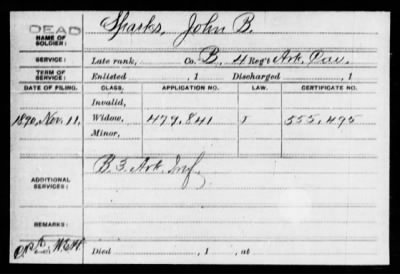 DEAD
NAME OF SOLDIER: Sparks, John B.
SERVICE: Late rank, Co. B, 4 Reg't Ark. Cav.
TERM OF SERVICE: Enlisted , 1 Discharged , 1
DATE OF FILING. CLASS. APPLICATION NO. CERTIFICATE NO.
Invalid,
1890, Nov. 11, Widow, 479,841 I 555,495
Minor,
ADDITIONAL SERVICES: B. 3. Ark. Inf.
REMARKS:
Died , 1 , at